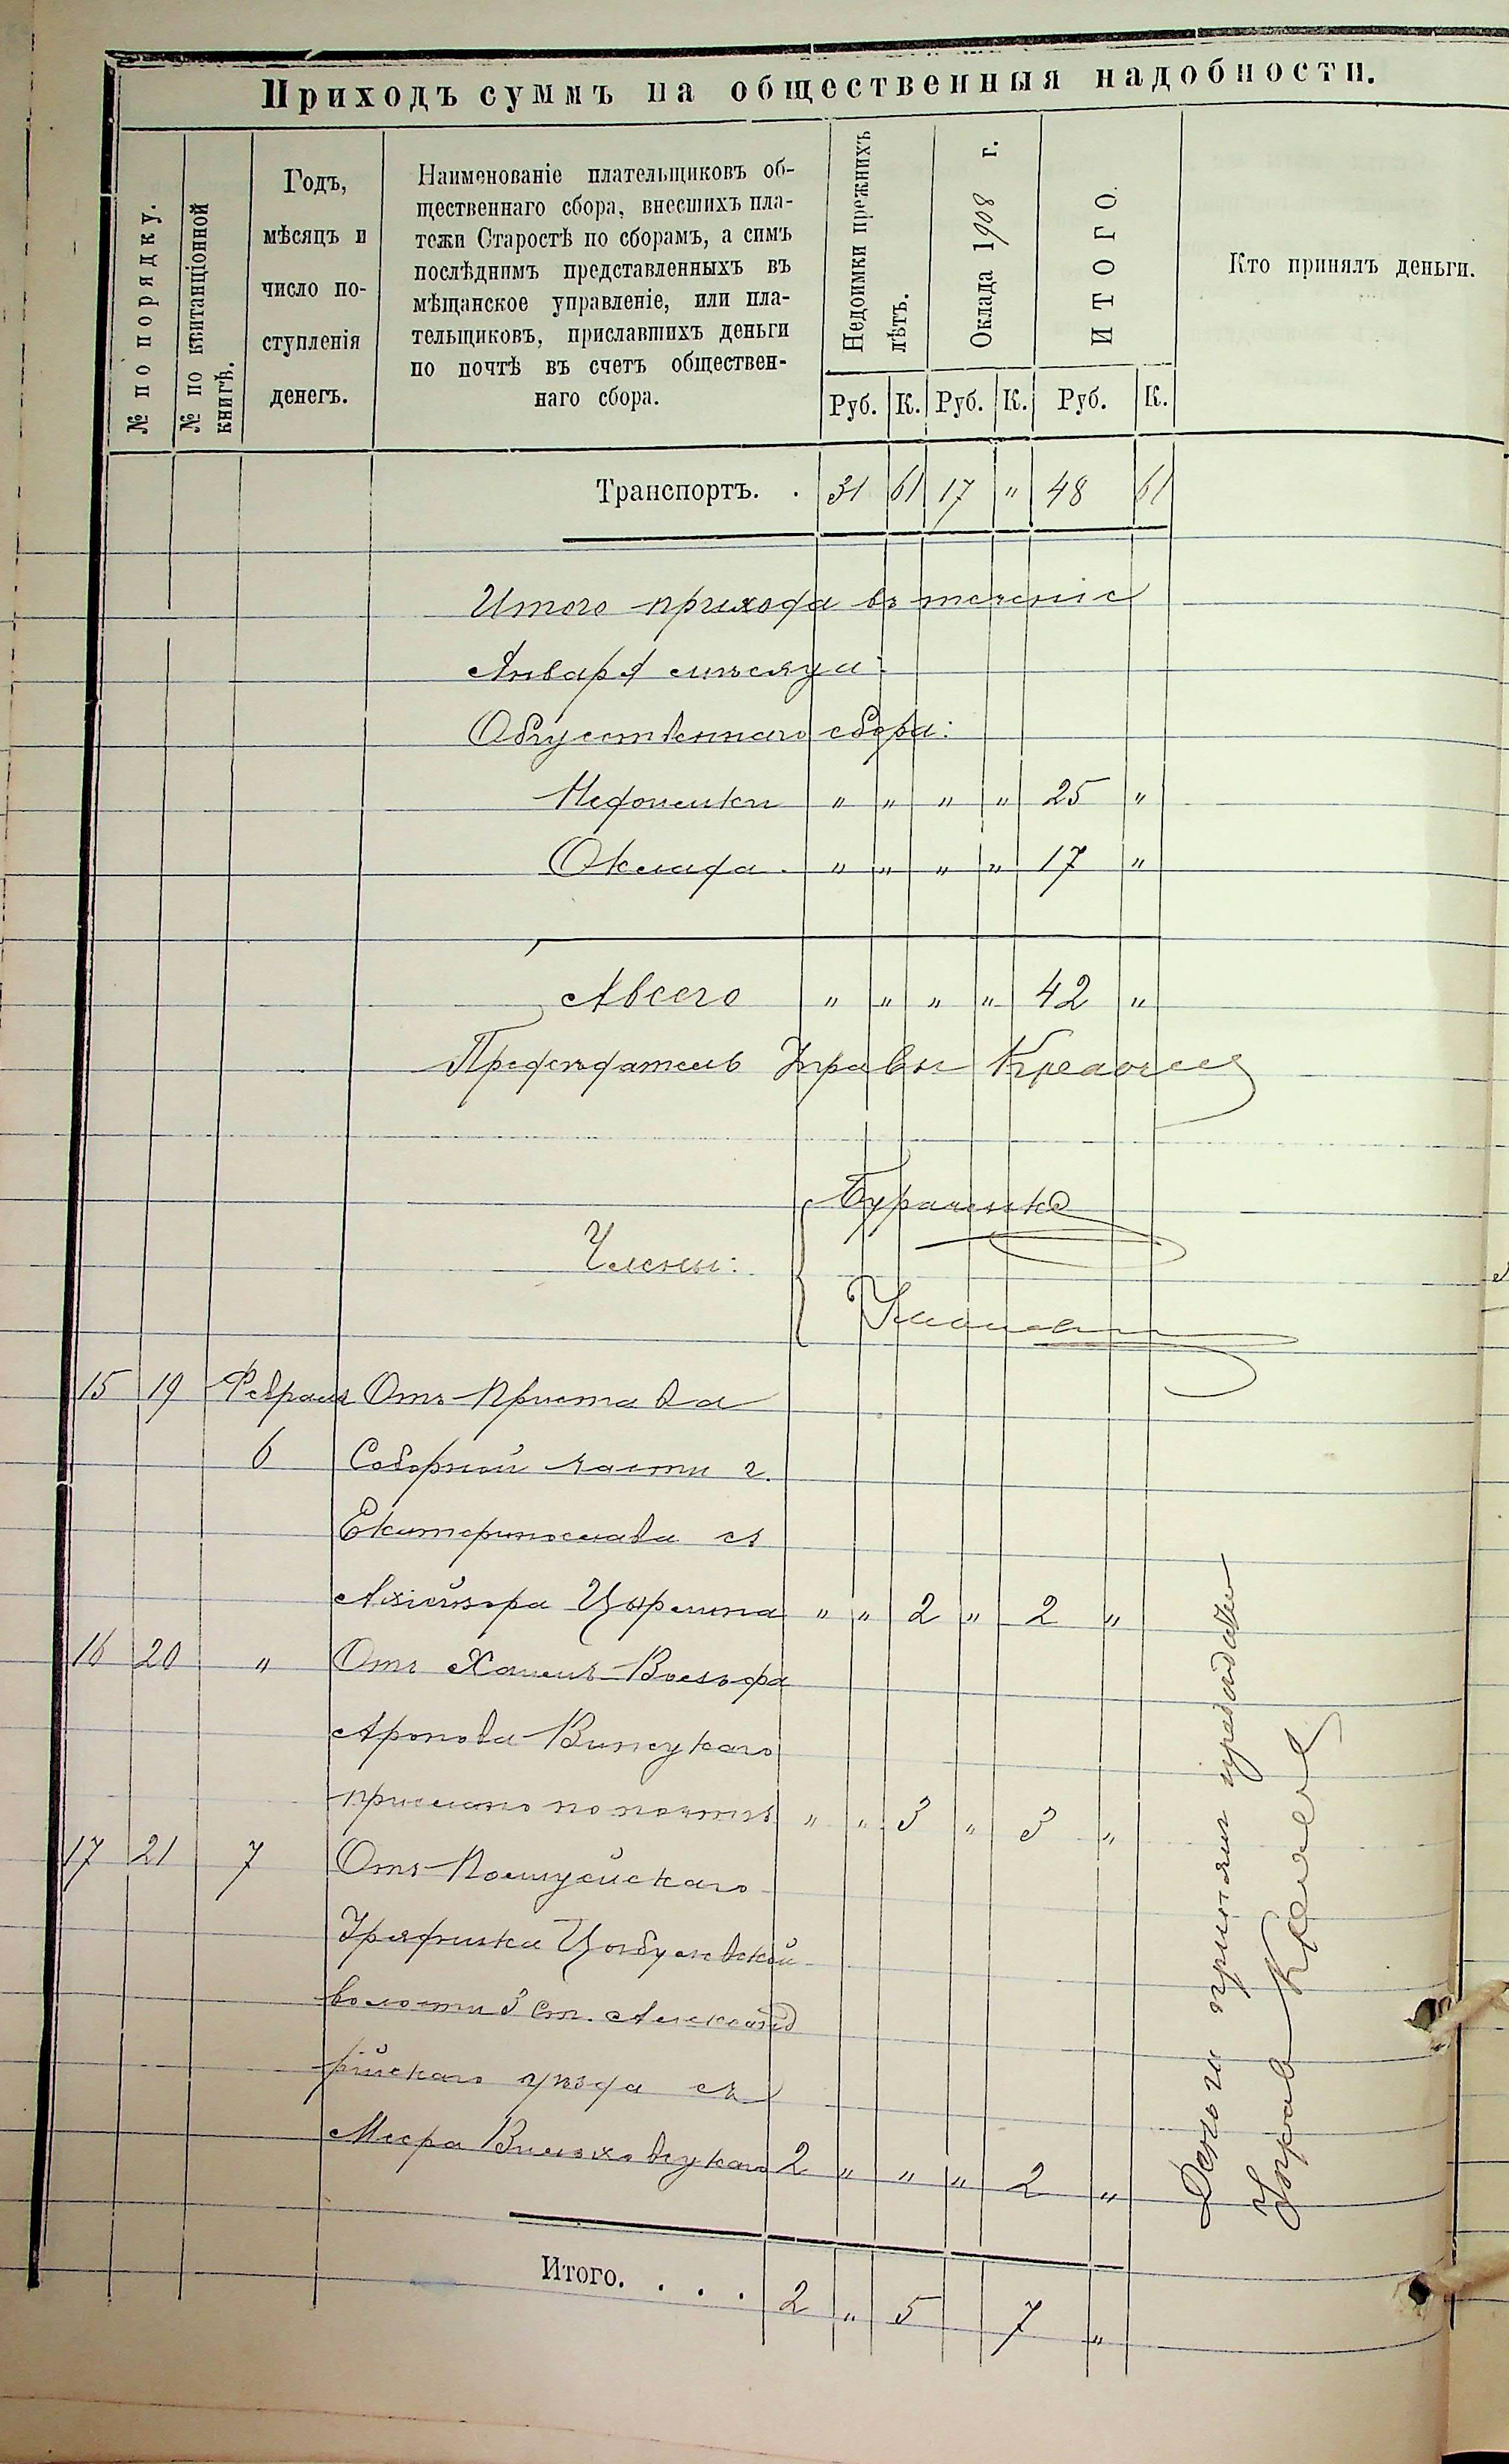 Приходъ суммъ на общественныя надобности.
№ по порядку.
№ по квитанціонной книгѣ.
Годъ,
мѣсяцъ и
число по-
ступленія
денегъ.
Наименованіе плательщиковъ об-
щественнаго сбора, внесшихъ пла-
тежи Старостѣ по сборамъ, а симъ
послѣднимъ представленныхъ въ
мѣщанское управленіе, или пла-
тельщиковъ, приславшихъ деньги
по почтѣ въ счетъ обществен-
наго сбора.
Недоимки прежнихъ лѣтъ.
Оклада 1908 г.
ИТОГО.
Кто принялъ деньги.
Руб. К. Руб. К. Руб. К.
Транспортъ. . 31 61 17 " 48 61
Итого прихода въ теченіе
Января мѣсяца:
Общественнаго сбора:
Недоимки " " " " 25 "
Оклада " " " " 17 "
А всего " " " " 42 "
Предсѣдатель Управы
Члены:
15 19 Февраля Отъ Пристава
6 Соборной части г.
Екатеринослава съ
Цырлина " " 2 " 2 "
16 20 " Отъ Хаимъ-Вольфа
Аронова
прислано по почтѣ " " 3 " 3 "
17 21 7 Отъ Полицейскаго
Урядника Цыбулевской
волости 3 ст. Александ
рійскаго уѣзда съ
Меера Вильховецкаго 2 " " " 2 "
Итого. . . . 2 " 5 7 "
Деньги принялъ предсѣдатель
Управы